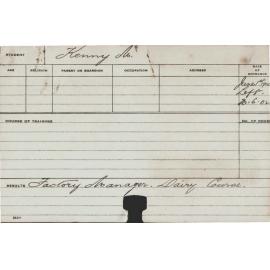 STUDENT Kenny M.
AGE RELIGION PARENT OR GUARDIAN OCCUPATION ADDRESS DATE OF ENTRANCE
Left
COURSE OF TRAINING
RESULTS Factory Manager. Dairy Course.